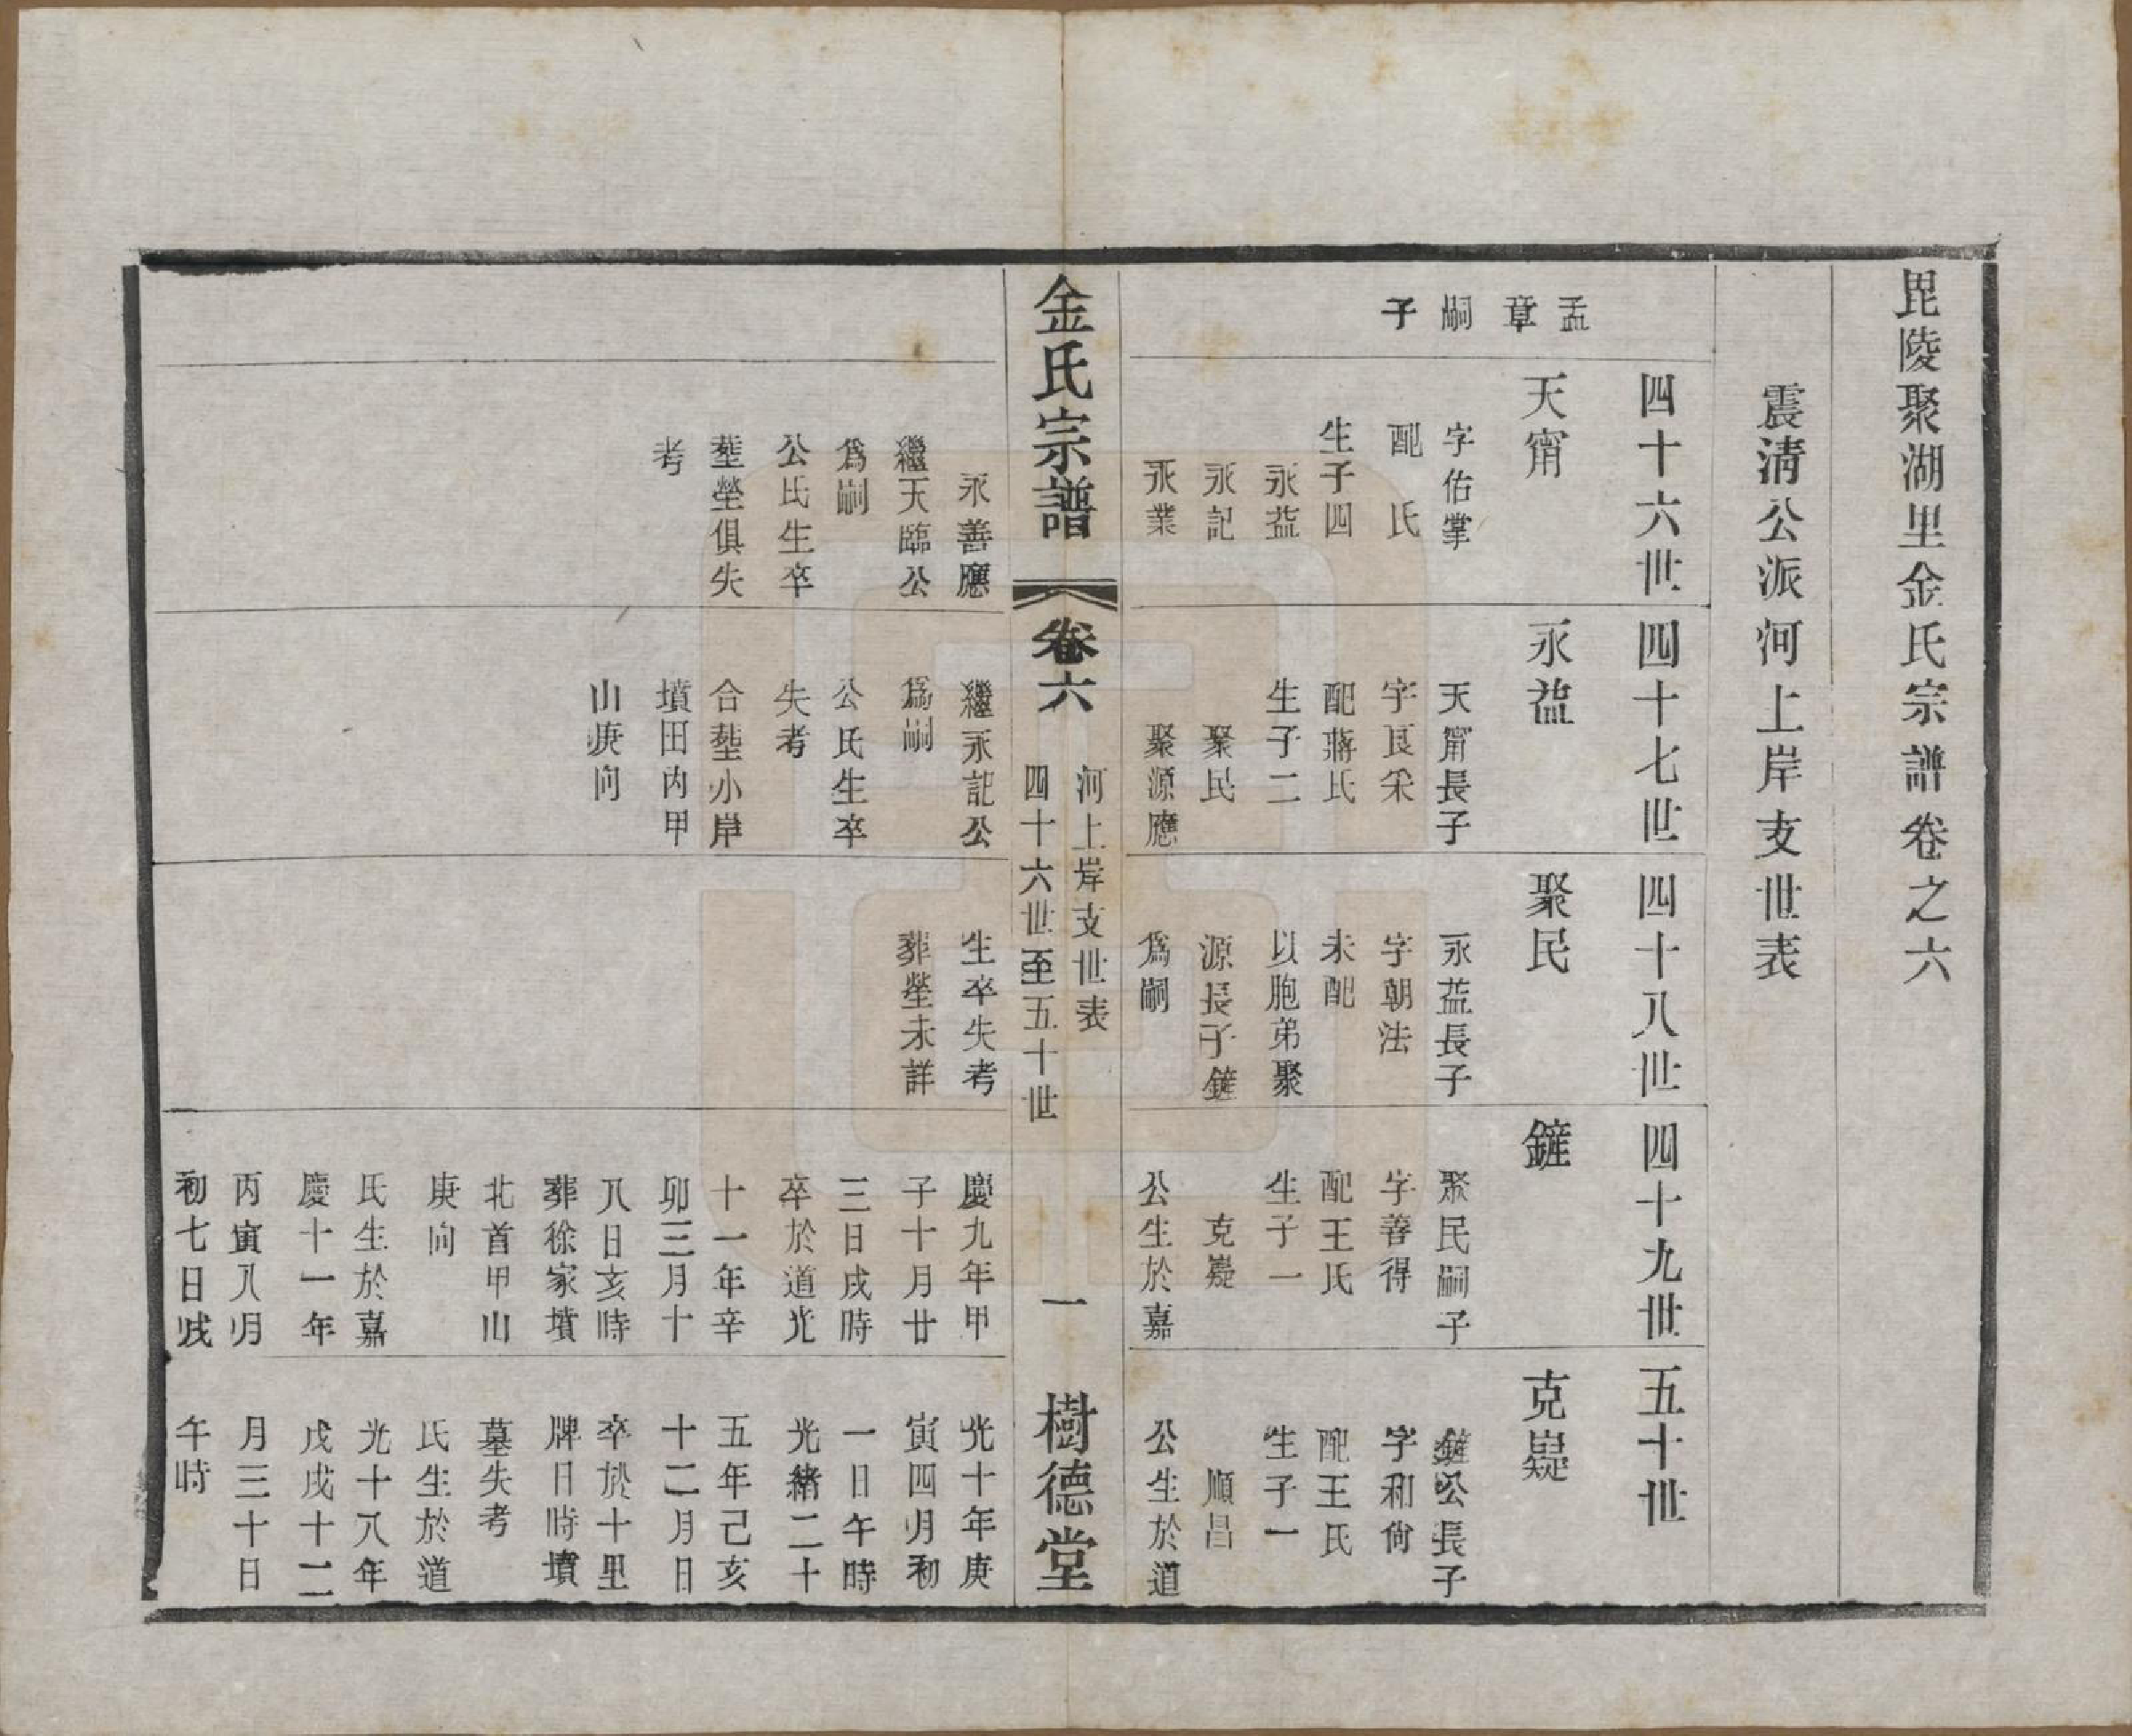 毘陵聚湖里金氏宗譜卷之六
震清公派河上岸支世表
四十六世
四十七世
四十八世
四十九世
五十世
孟章嗣子
天甯
字佑掌
配　氏
生子四
永益
永記
永業
永善應
繼天臨公
爲嗣
公氏生卒
塟塋俱失
考
永益
天甯長子
字艮采
配蔣氏
生子二
聚民
聚源應
繼永記公
爲嗣
公氏生卒
失考
合塟小岸
墳田內甲
山庚向
聚民
永益長子
字朝法
未配
以胞弟聚
源長子鏟
爲嗣
生卒失考
葬塋未詳
鏟
聚民嗣子
字善得
配王氏
生子一
克嶷
公生於嘉
慶九年甲
子十月廿
三日戌時
卒於道光
十一年辛
卯三月十
八日亥時
葬徐家墳
北首甲山
庚向
氏生於嘉
慶十一年
丙寅八月
初七日戌
克嶷
鏟公長子
字和尙
配王氏
生子一
順昌
公生於道
光十年庚
寅四月初
一日午時
光緒二十
五年己亥
十二月日
卒於十里
牌日時墳
墓失考
氏生於道
光十八年
戊戌十二
月三十日
午時
金氏宗譜
卷六
河上岸支世表
四十六世至五十世
一
樹德堂